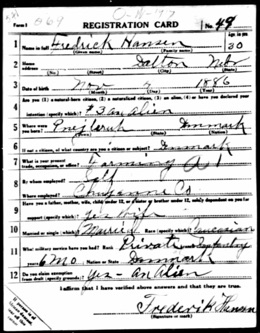 Form 1
869
REGISTRATION CARD
No. 49
1 Name in full Fredrick Hansen Age, in yrs. 30
(Given name) (Family name)
2 Home address Dalton Nebr
(No.) (Street) (City) (State)
3 Date of birth Nov 1886
(Month) (Day) (Year)
4 Are you (1) a natural-born citizen, (2) a naturalized citizen, (3) an alien, (4) or have you declared your
intention (specify which)? #3 an alien
5 Where were you born? Denmark
(Town) (State) (Nation)
6 If not a citizen, of what country are you a citizen or subject? Denmark
7 What is your present trade, occupation, or office? Farming
8 By whom employed? Self
Where employed? Cheyenne Co
9 Have you a father, mother, wife, child under 12, or a sister or brother under 12, solely dependent on you for
support (specify which)? yes wife
10 Married or single (which)? Married Race (specify which)? Caucasian
11 What military service have you had? Rank Private; branch Infantry
years 6 Mo; Nation or State Denmark
12 Do you claim exemption from draft (specify grounds)? yes - an Alien
I affirm that I have verified above answers and that they are true.
Frederik Hansen
(Signature or mark)